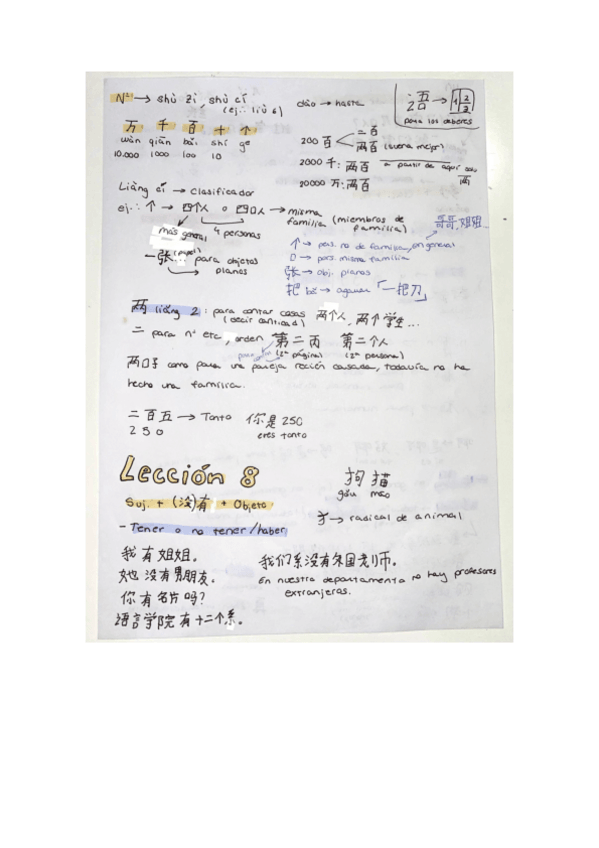 Nº → shù zì, shù cí
(ej.: liù 6)
dào → hasta
语 → 1 2 3
para los deberes
万 千 百 十 个
wàn qiān bǎi shí ge
10.000 1000 100 10
200 百 < 二百
两百 (suena mejor)
2000 千: 两百 a partir de aquí solo 两
20000 万: 两百
Liàng cí → Clasificador
ej.: 个 → 四个人 o 四口人 → misma
familia (miembros de
familia)
哥哥, 姐姐...
más general 4 personas
个 → pers. no de familia, en general
口 → pers. misma familia
一张 (papel) para objetos
planos
张 → obj. planos
把 bǎ → agarrar 「一把刀」
两 liǎng 2: para contar cosas 两个人, 两个学生...
(decir cantidad)
二 para nº etc, orden 第二页 第二个人
(2ª página) (2ª persona)
两口子 como para una pareja recién casada, todavía no ha
hecho una familia.
二百五 → Tonto 你是250
2 5 0 eres tonto
Lección 8
狗 猫
gǒu mao
Suj. + (没)有 + Objeto
犭 → radical de animal
- Tener o no tener/haber
我有姐姐。
我们系没有外国老师。
她没有男朋友。
En nuestro departamento no hay profesores
extranjeros.
你有名片吗?
语言学院有十二个系。